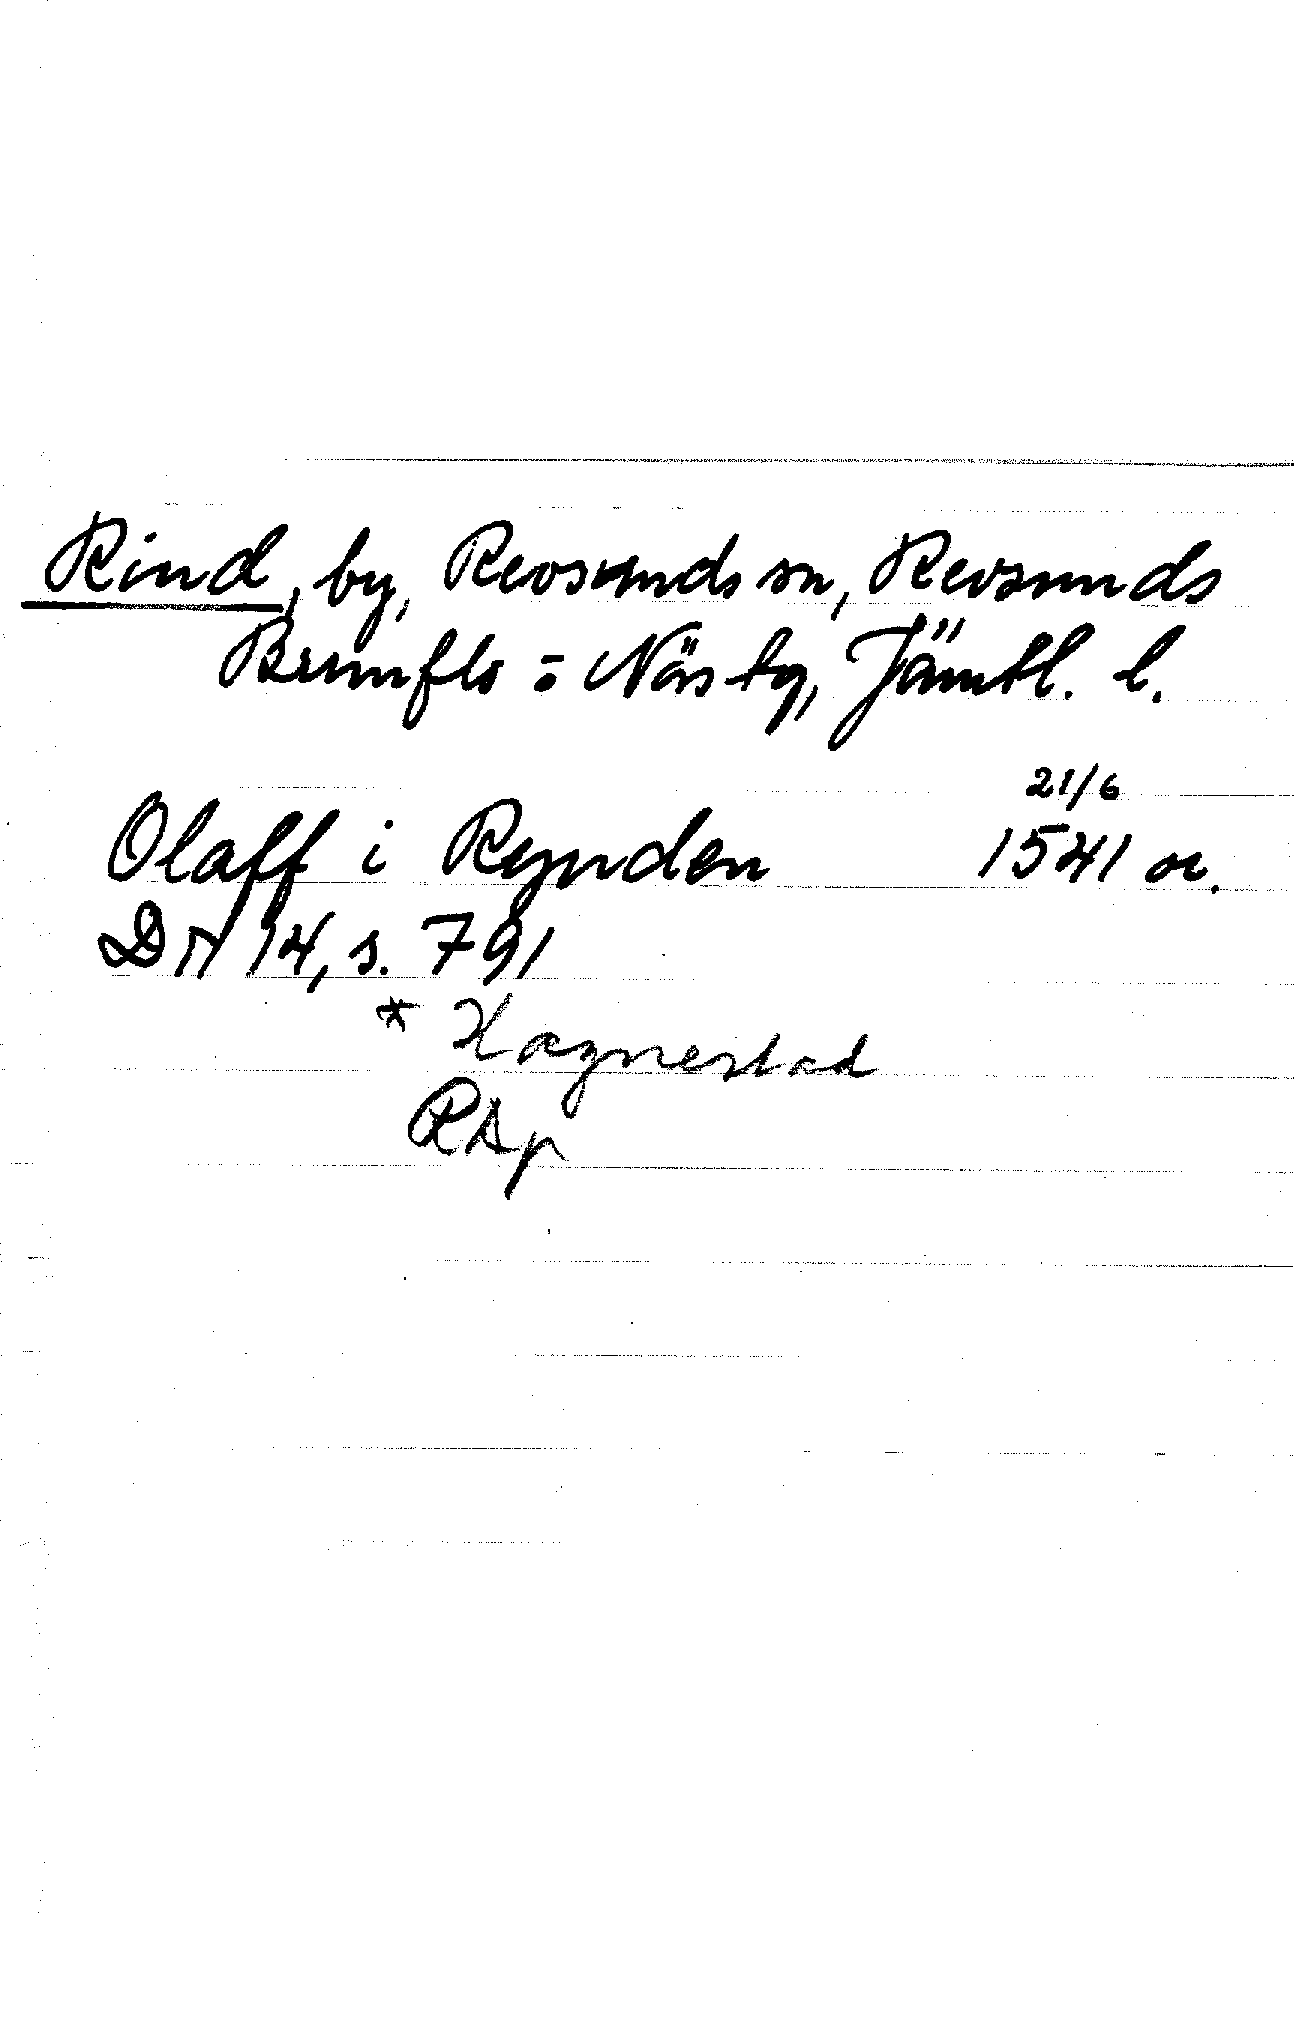 Rind, by, Revsunds sn, Revsunds
Brunflo = Näs tg, Jämtl. l.
21/6
Olaff i Rynden 1541 or.
DN 14, s. 791
* Hagnestad
RAp